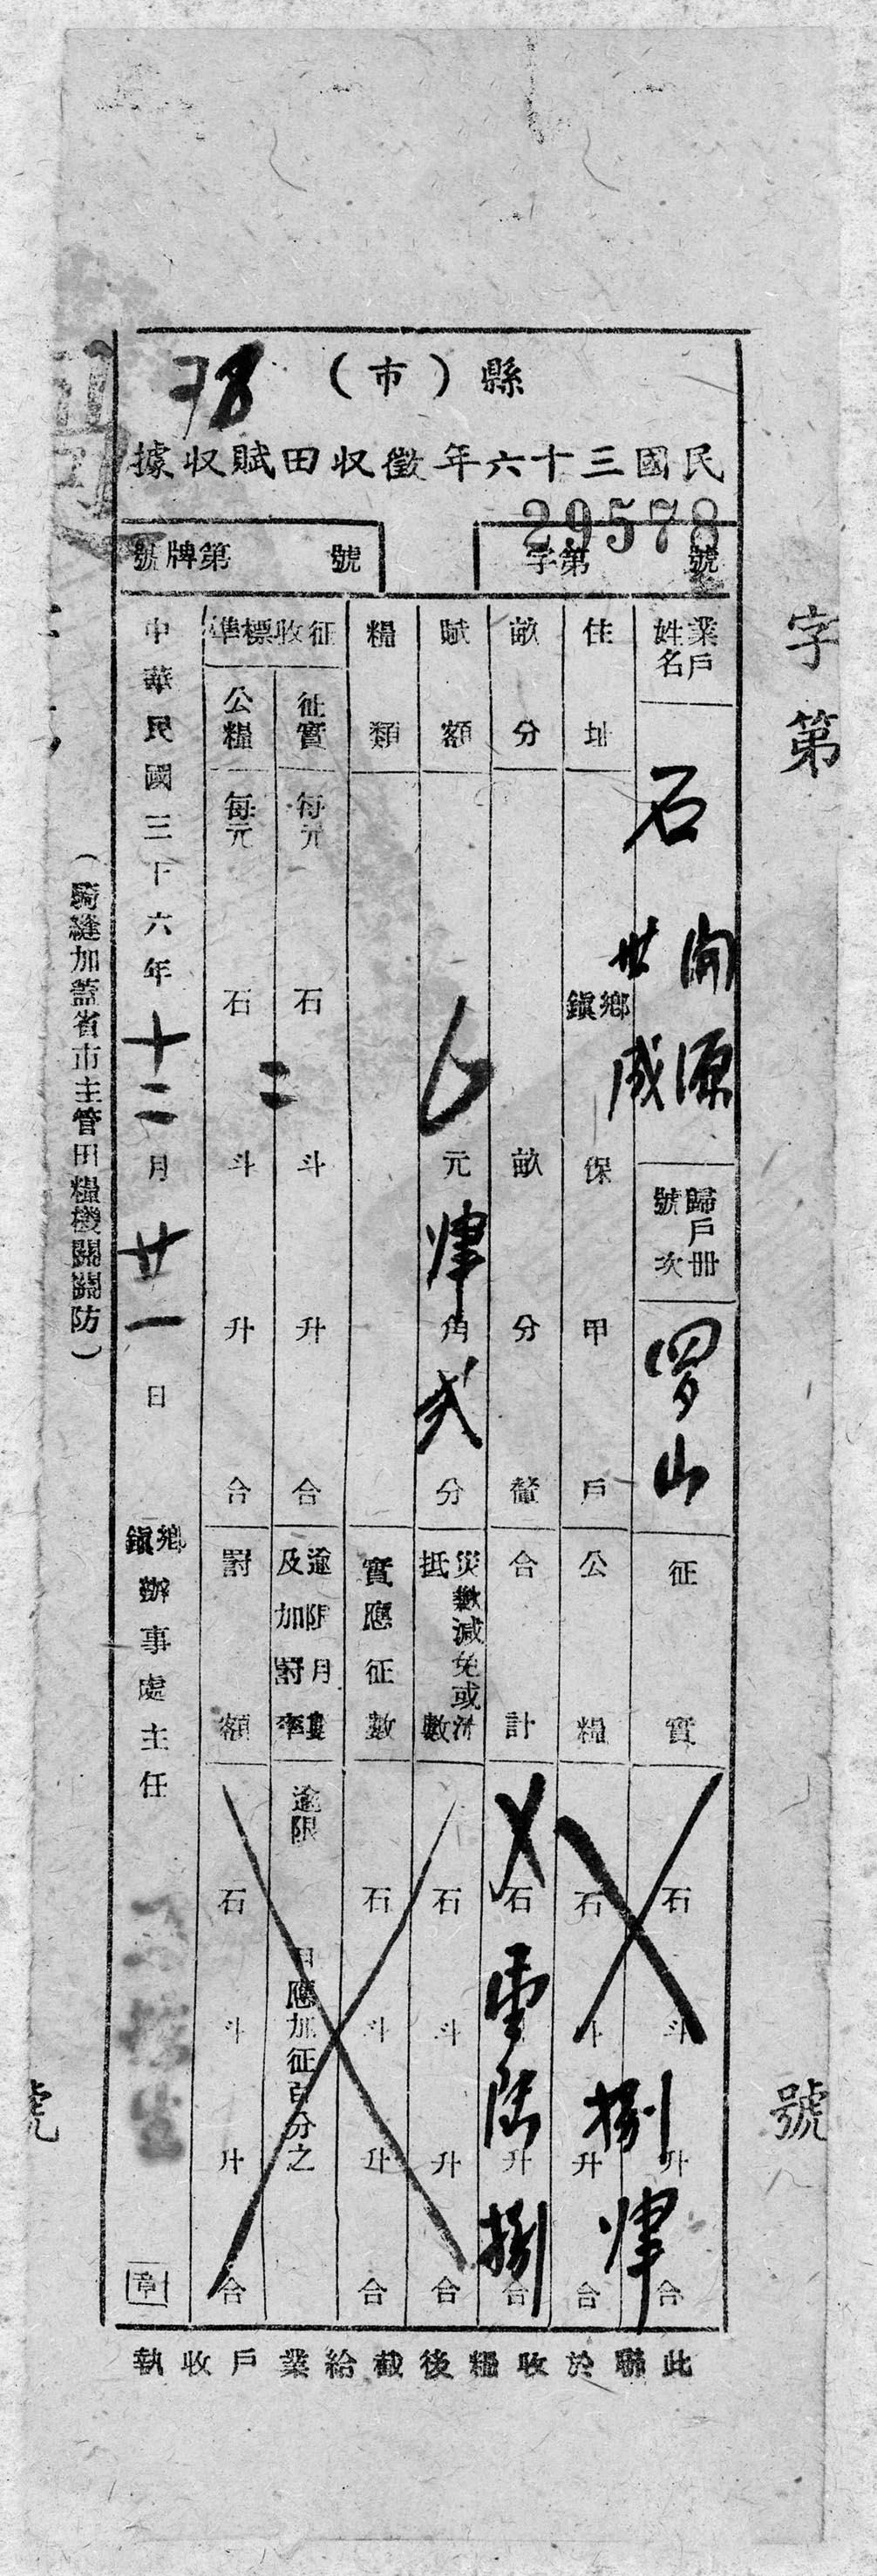 縣（市）
78
民國三十六年徵收田賦收據
29578
字第 號
號牌第 號
業戶姓名 石 開源 世成
歸戶冊號次 罗山
征實 石 斗 升 合
住址 鄉鎮 保 甲 戶
公糧 石 斗 捌升 合
畝分 畝 分 釐
合計 石 陸升 捌合
賦額 元 角 弍分
災歉減免或抵數 石 斗 升 合
糧類
實應征數 石 斗 升 合
征收標準
征實 每元 石 二斗 升 合
逾限月數及加罰率 逾限 月應加征百分之
公糧 每元 石 斗 升 合
罰額 石 斗 升 合
中華民國三十六年十二月廿一日
鄉鎮辦事處主任
章
（騎縫加蓋省市主管田糧機關關防）
此聯於收糧後截給業戶收執
字第 號
號